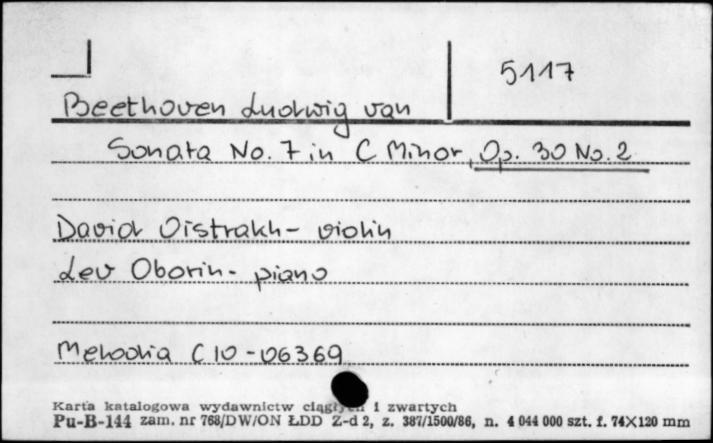 5117
Beethoven Ludwig van
Sonata No. 7 in C Minor, Op. 30 No. 2
David Oistrakh - violin
Lev Oborin - piano
Melodia C 10 - 06369
Karta katalogowa wydawnictw ciągłych i zwartych
Pu-B-144 zam. nr 768/DW/ON ŁDD Z-d 2, z. 387/1500/86, n. 4 044 000 szt. f. 74X120 mm